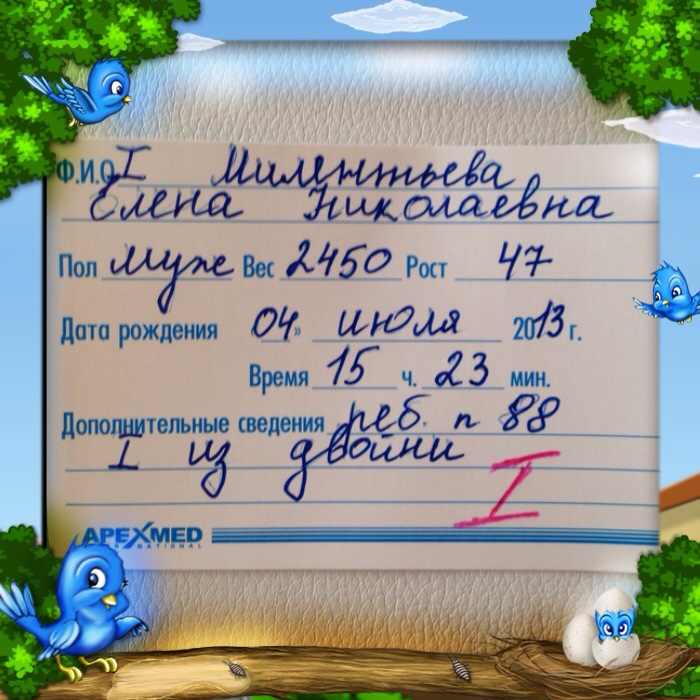 Ф.И.О I Милентьева
Елена Николаевна
Пол муж Вес 2450 Рост 47
Дата рождения 04» июля 2013 г.
Время 15 ч. 23 мин.
Дополнительные сведения реб. п 88
I из двойни
I
APEXMED
INTERNATIONAL